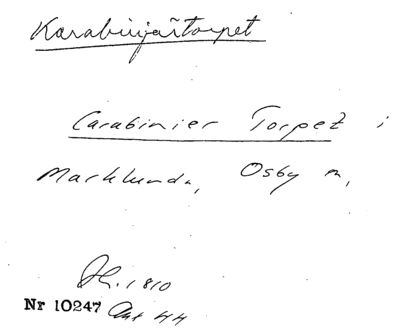 Karabinjärtorpet
Carabinier Torpet i
Marklunda, Osby sn,
Hf. 1810
Nr 10247 Akt 44